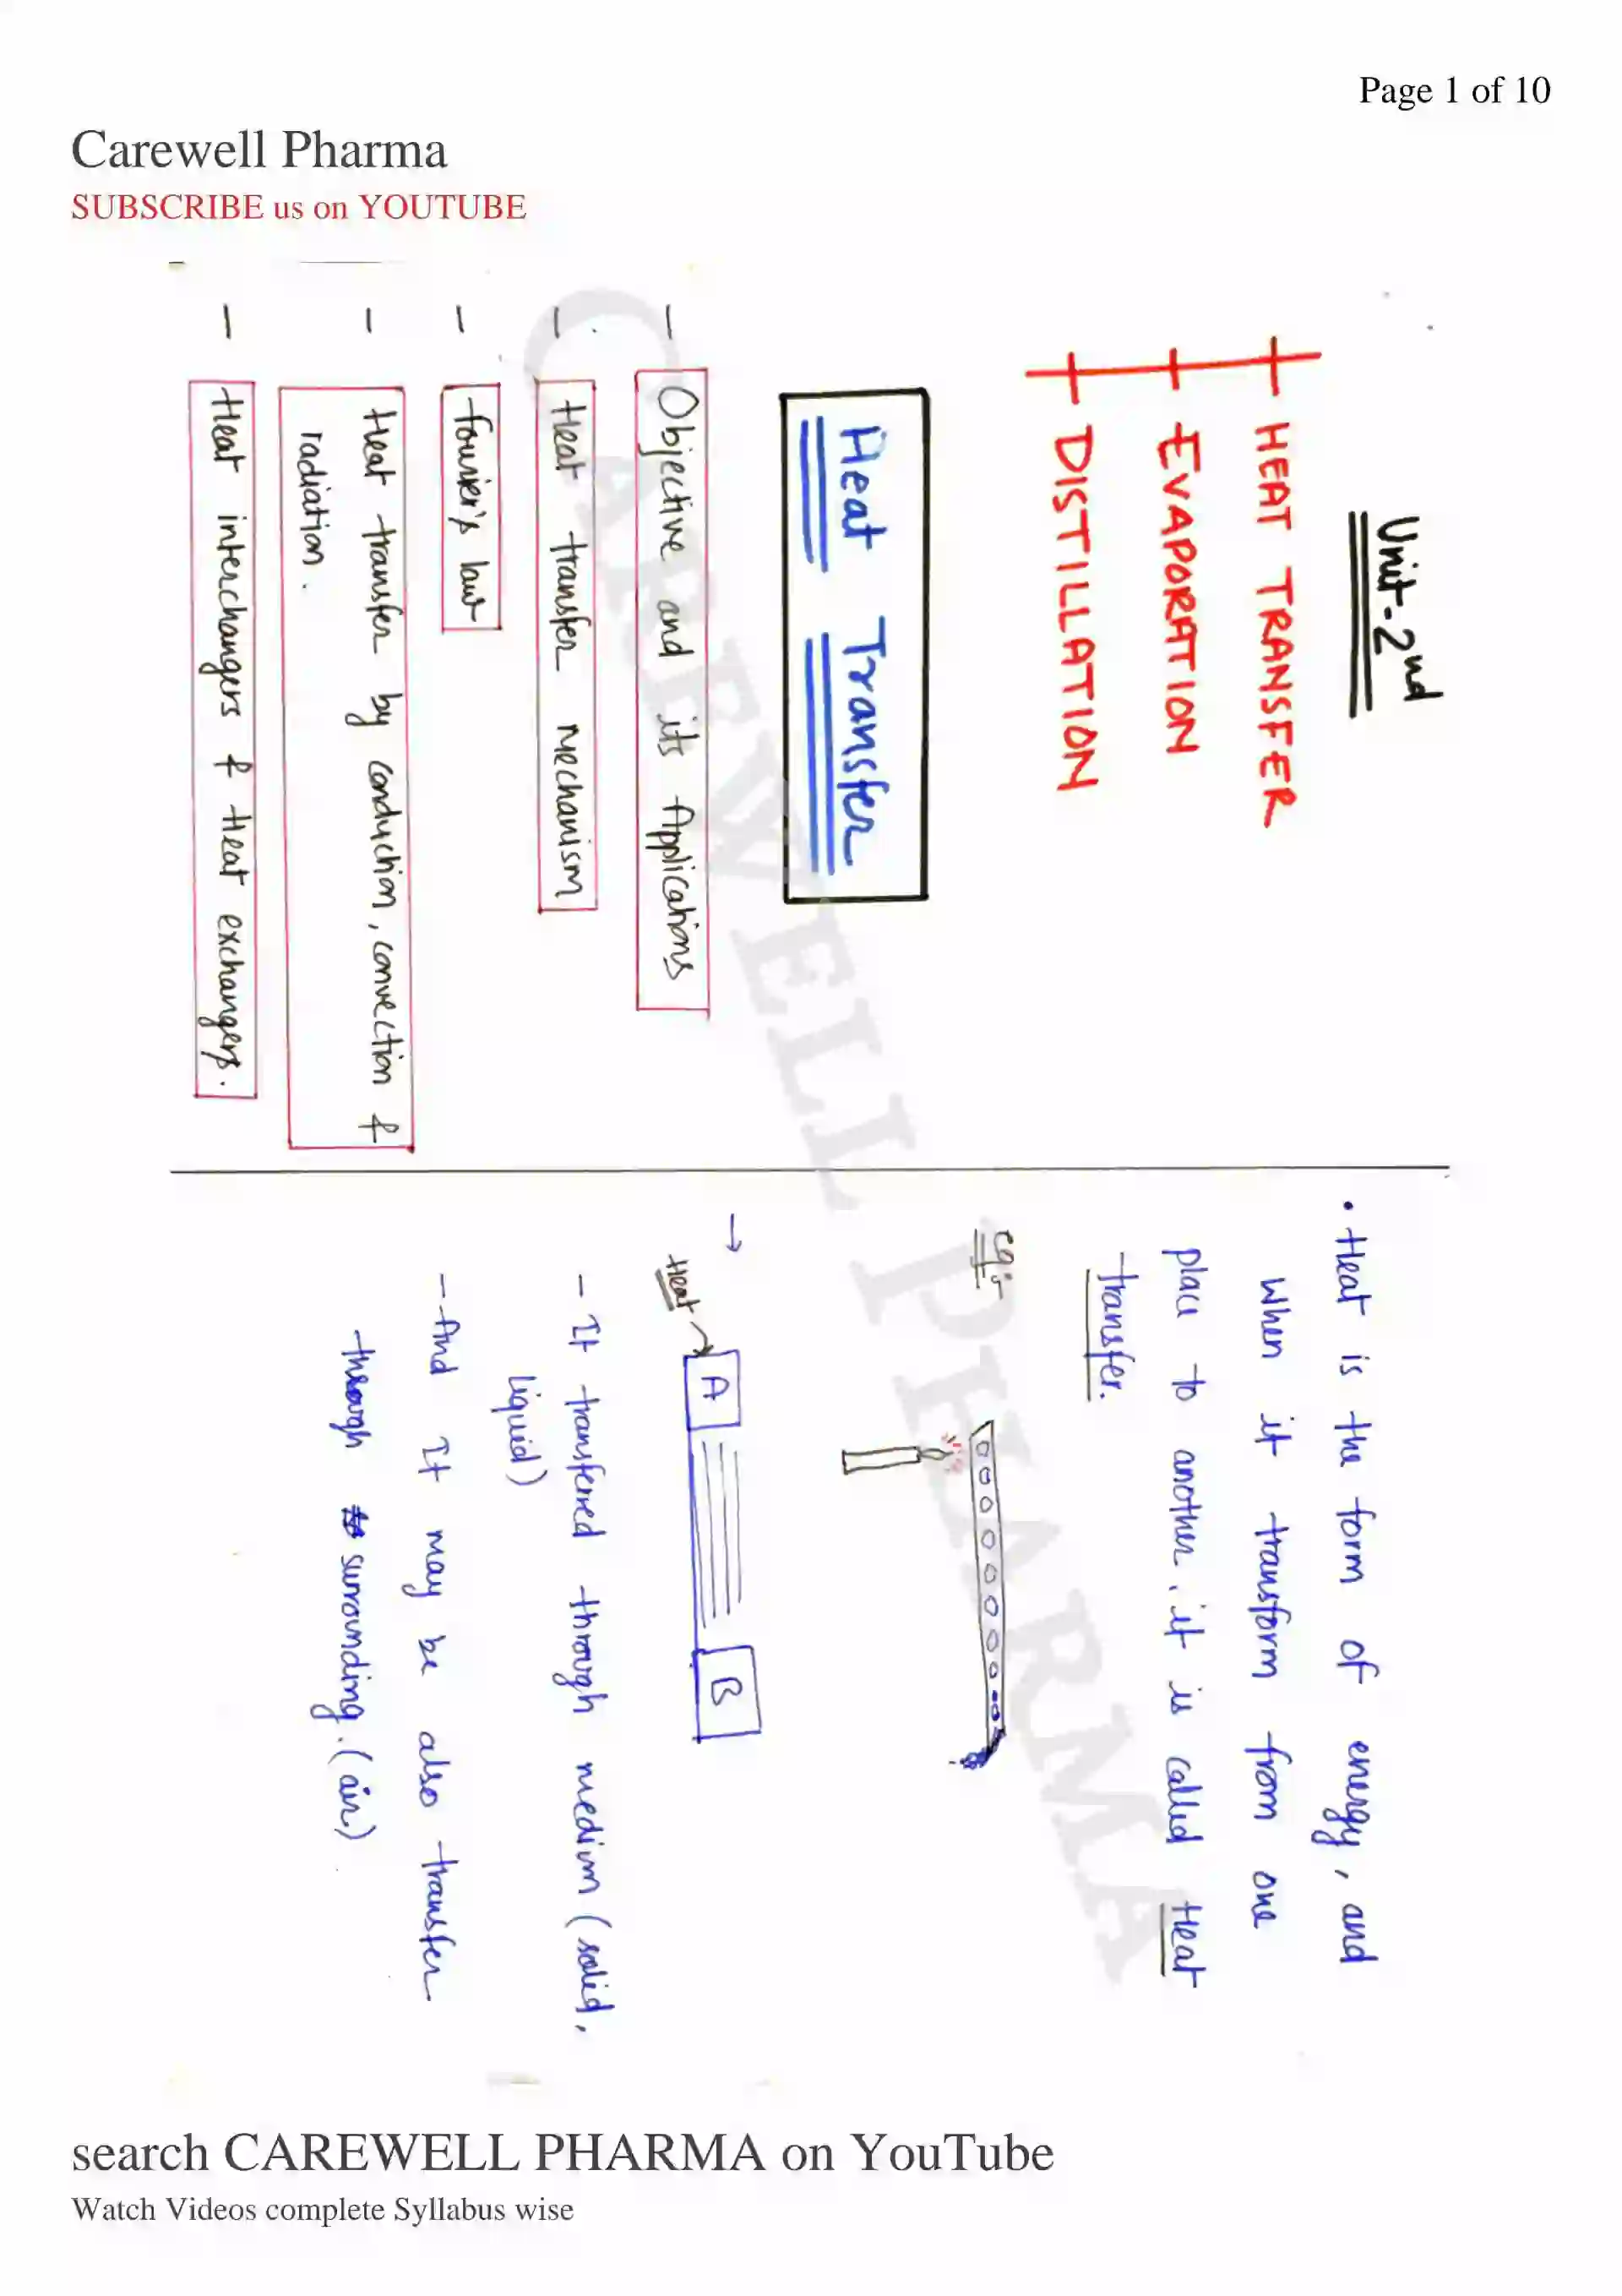 Page 1 of 10
Carewell Pharma
SUBSCRIBE us on YOUTUBE
Unit-2nd
HEAT TRANSFER
EVAPORATION
DISTILLATION
Heat Transfer
- Objective and its Applications
- Heat transfer mechanism
- fourier's law
- Heat transfer by conduction, convection &
radiation.
- Heat interchangers & Heat exchangers.
• Heat is the form of energy, and
when it transform from one
place to another, it is called Heat
transfer.
eg:-
→
Heat
A
B
- It transferred through medium (solid,
liquid)
- And It may be also transfer
through surrounding. (air)
CAREWELL PHARMA
search CAREWELL PHARMA on YouTube
Watch Videos complete Syllabus wise